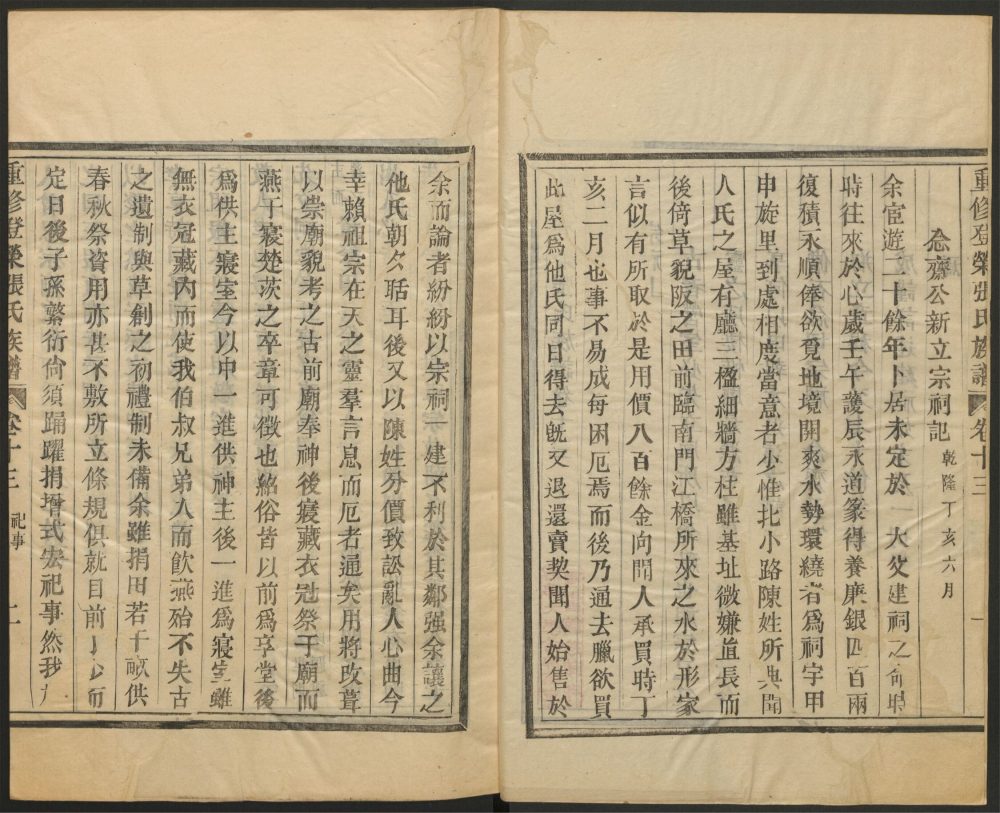 重修登榮張氏族譜 卷十三 一
念齋公新立宗祠記 乾隆丁亥六月
余宦遊二十餘年卜居未定於 大父建祠之命
時往來於心歲壬午護辰永道篆得養廉銀四百兩
復積永順俸欲覓地境開爽水勢環繞者爲祠宇甲
申旋里到處相度當意者少惟北小路陳姓所典聞
人氏之屋有廳三楹細牆方柱雖基址微嫌直長而
後倚草貌阪之田前臨南門江橋所來之水於形家
言似有所取於是用價八百餘金向聞人承買時丁
亥二月也事不易成每困厄焉而後乃通去臘欲買
此屋爲他氏同日得去旣又退還賣契聞人始售於
余而論者紛紛以宗祠一建不利於其鄰强余讓之
他氏朝夕聒耳後又以陳姓分價致訟亂人心曲今
幸賴祖宗在天之靈羣言息而厄者通矣用將改葺
以崇廟貌考之古前廟奉神後寢藏衣冠祭于廟而
燕于寢楚茨之卒章可徵也紹俗皆以前爲享堂後
爲供主寢室今以中一進供神主後一進爲寢室雖
無衣冠藏內而使我伯叔兄弟入而飮燕殆不失古
之遺制與草創之初禮制未備余雖捐田若干畝供
春秋祭資用亦甚不敷所立條規俱就目前 而
定日後子孫繁衍尙須踴躍捐增式宏祀事然我
重修登榮張氏族譜 卷十三 祀事 一